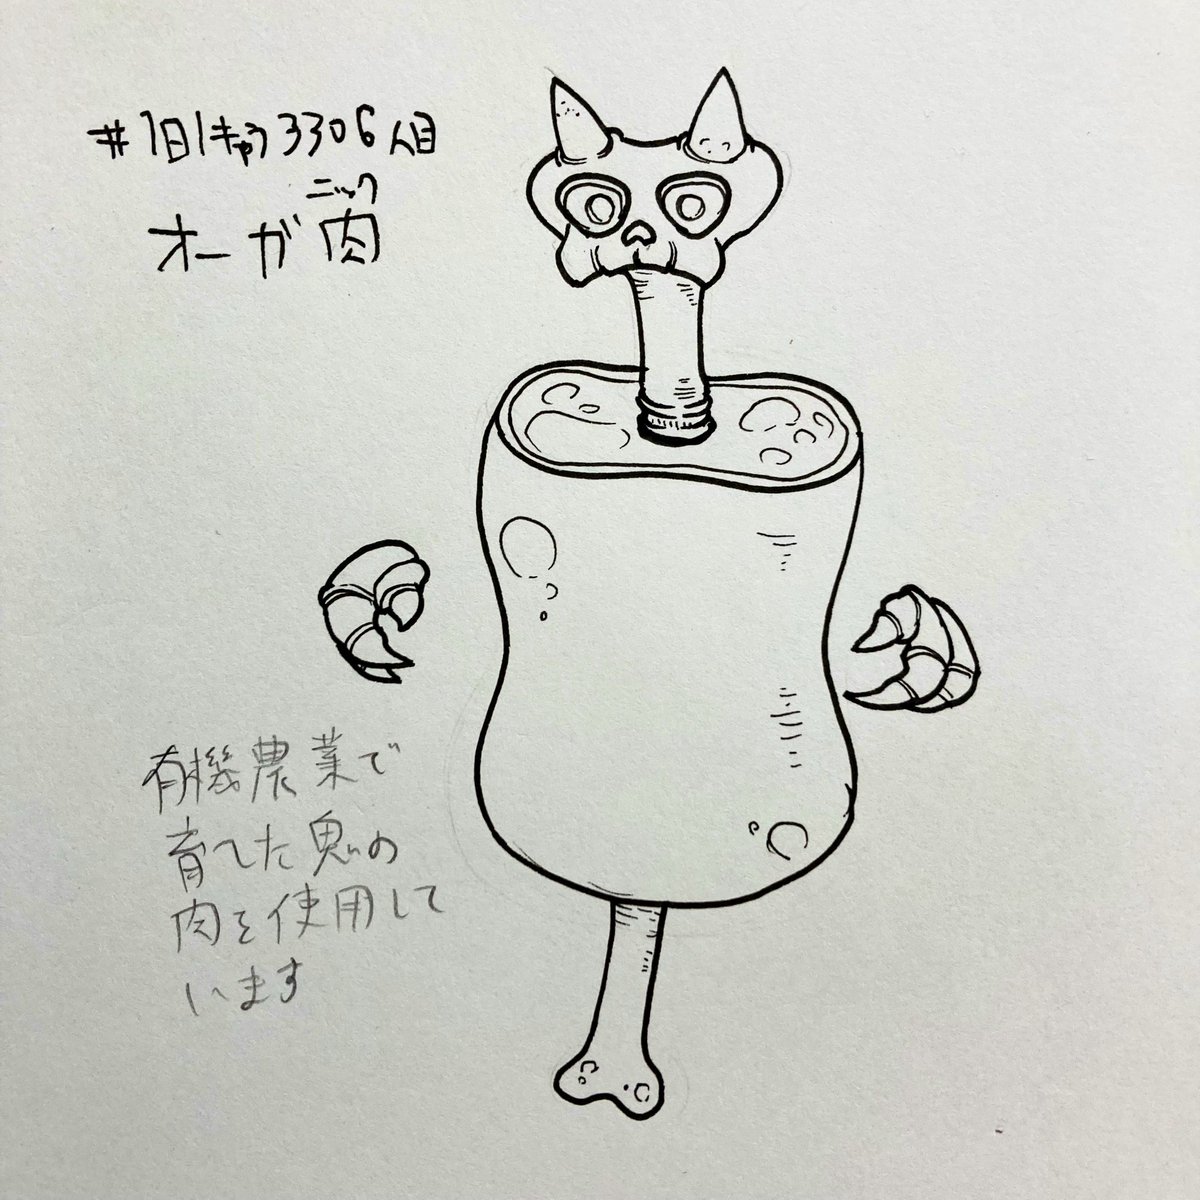 #1日1きゅう3306人目
ニック
オーガ肉
有機農業で
育てた鬼の
肉を使用して
います